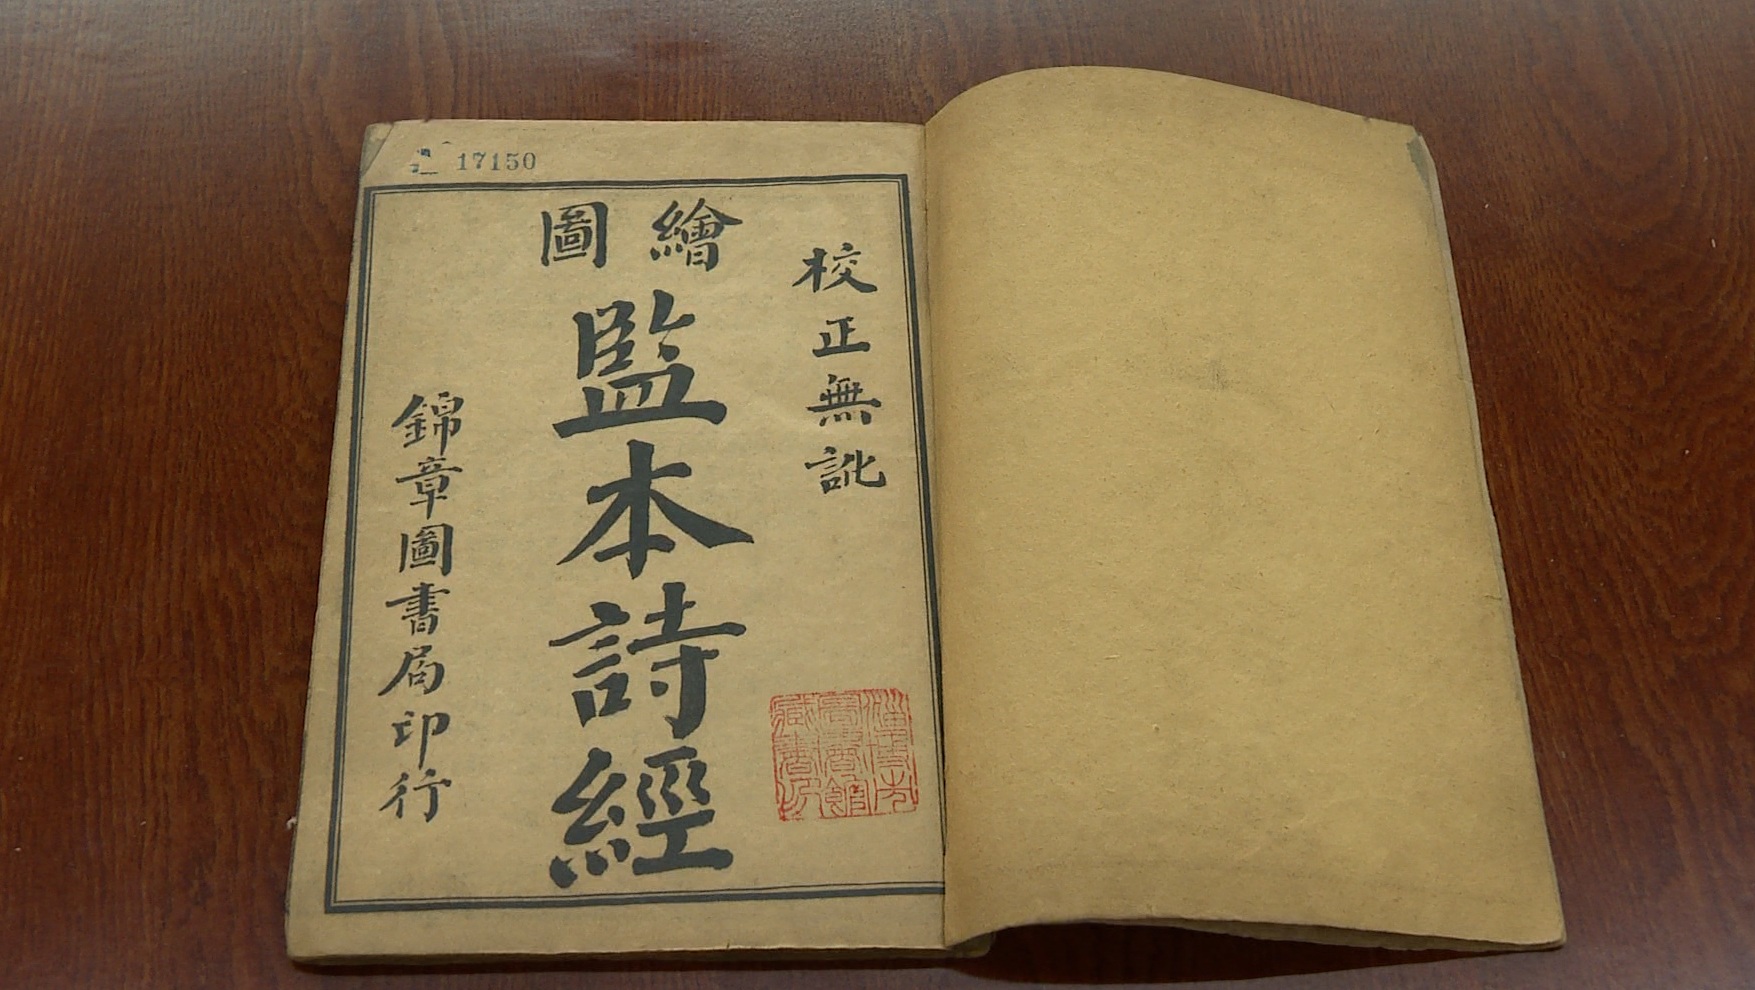 17150
校正無訛
繪圖
監本詩經
錦章圖書局印行